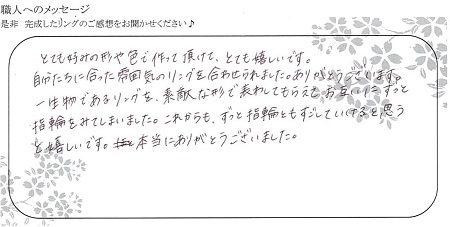 職人へのメッセージ
是非 完成したリングのご感想をお聞かせください♪
とても好みの形や色で作って頂けて、とても嬉しいです。
自分たちに合った雰囲気のリングを合わせられました。ありがとうございます。
一生物であるリングを、素敵な形で表わしてもらえて、お互いにずっと
指輪をみてしまいました。これからも、ずっと指輪ともすごしていけると思う
と嬉しいです。本当にありがとうございました。